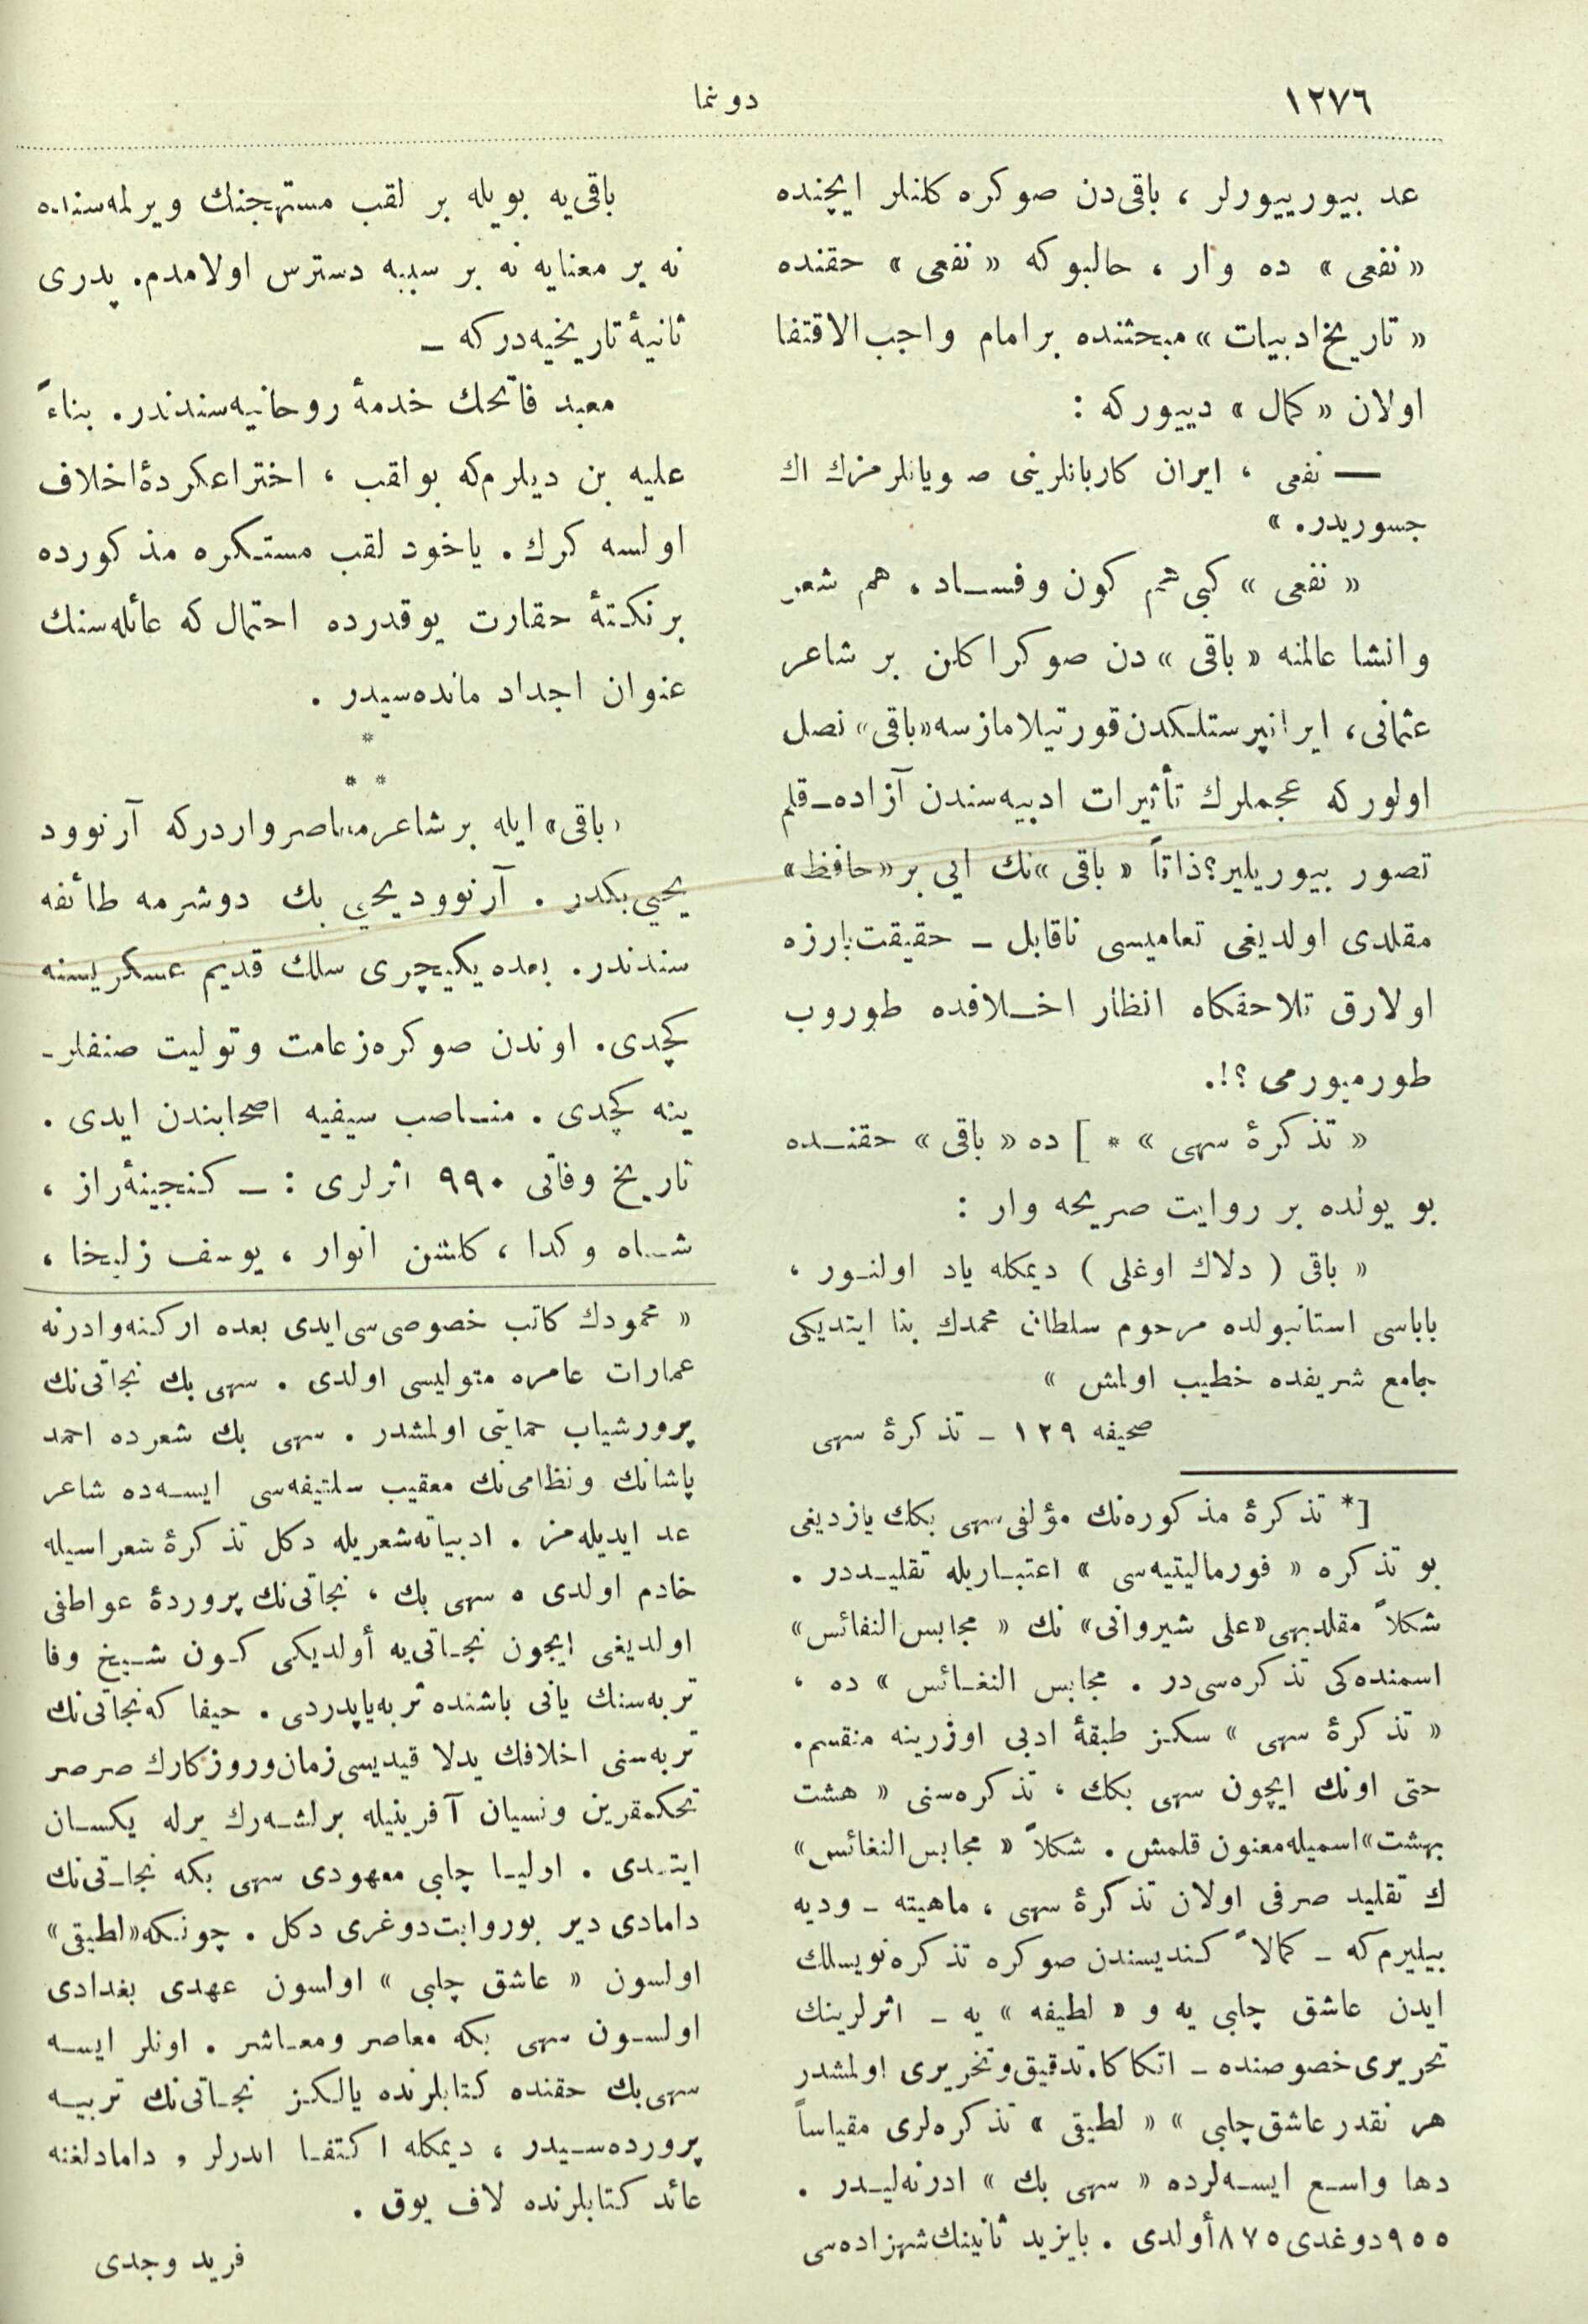 ١٢٧٦
دونما
عد بیورییورلر ، باقی‌دن صوکره کلنلر ایچنده
« نفعی » ده وار ، حالبوکه « نفعی » حقنده
« تاریخ ادبیات » مبحثنده بر امام واجب‌الاقتفا
اولان « کمال » دییورکه :
— نفعی ، ایران کاربانلرینی صویانلرمزك اك
جسوریدر. »
« نفعی » کبی هم کون وفساد ، هم شعر
وانشا عالمنه « باقی » دن صوکرا کلن بر شاعر
عثمانی، ایرانپرستلکدن قورتیلامازسه «باقی» نصل
اولورکه عجملرك تأثیرات ادبیه‌سندن آزاده‌ـ‌قلم
تصور بیوریلیر؟ ذاتاً « باقی »نك ایی بر «حافظ»
مقلدی اولدیغی تعامیسی ناقابل ـ حقیقت بارزه
اولارق تلاحفکاه انظار اخلافده طوروب
طورمیورمی ؟!.
« تذکرهٔ سهی » * ] ده « باقی » حقنده
بو یولده بر روایت صریحه وار :
« باقی ( دلاك اوغلی ) دیمکله یاد اولنور ،
باباسی استانبولده مرحوم سلطان محمدك بنا ایتدیکی
جامع شریفده خطیب اولمش »
صحیفه ١٢٩ ـ تذکرهٔ سهی
[* تذکرهٔ مذکوره‌نك مؤلفی سهی بكك یازدیغی
بو تذکره « فورمالیتیه‌سی » اعتباریله تقلیددر .
شکلاً مقلدبهی «علی شیروانی» نك « مجابس‌النفائس»
اسمنده‌کی تذکره‌سی‌در . مجابس النفائس » ده ،
« تذکرهٔ سهی » سکز طبقهٔ ادبی اوزرینه منقسم.
حتی اونك ایچون سهی بكك ، تذکره‌سنی « هشت
بهشت» اسمیله معنون قلمش . شکلاً « مجابس‌النغائس»
ك تقلید صرفی اولان تذکرهٔ سهی ، ماهیته ـ ودیه
بیلیرم‌که ـ کمالاً کندیسندن صوکره تذکره‌نویسلك
ایدن عاشق چلبی یه و « لطیفه » یه ـ اثرلرینك
تحریری خصوصنده ـ اتکاکاه تدقیق وتحریری اولمشدر
هر نقدر عاشق چلبی » « لطیقی » تذکره‌لری مقیاساً
دها واسع ایسه‌لرده « سهی بك » ادرنه‌لیدر .
٩٥٥ دوغدی ٨٧٥ أولدی . بایزید ثانینك شهزاده‌سی
باقی‌یه بویله بر لقب مستهجنك ویرلمه‌سنده
نه بر معنایه نه بر سببه دسترس اولامدم. پدری
ثانیهٔ تاریخیه‌درکه ـ
معبد فاتحك خدمهٔ روحانیه‌سندندر. بناءً
علیه بن دیلرم‌که بو لقب ، اختراعکردهٔ اخلاف
اولسه کرك . یاخود لقب مستکره مذکورده
بر نکتهٔ حقارت یوقدرده احتمال که عائله‌سنك
عنوان اجداد مانده‌سیدر .
*
* *
«باقی» ایله بر شاعر معاصر واردرکه آرنوود
یحیی بکدر . آرنوود یحیی بك دوشرمه طائفه
سندندر. بعده یکیچری سلك قدیم عسکریسنه
کچدی. اوندن صوکره زعامت وتولیت صنفلر‌ـ
ینه کچدی . مناصب سیفیه اصحابندن ایدی .
تاریخ وفاتی ٩٩٠ اثرلری : ـ کنجینهٔ راز ،
شاه وکدا ، کلشن انوار ، یوسف زلیخا ،
« محمودك کاتب خصوصی‌سی ایدی بعده ارکنه وادرنه
عمارات عامره متولیسی اولدی . سهی بك نجاتی‌نك
پرورشیاب حمایتی اولمشدر . سهی بك شعرده احمد
پاشانك ونظامی‌نك معقیب سلتیفه‌سی ایسه‌ده شاعر
عد ایدیله‌مز . ادبیاته شعریله دکل تذکرهٔ شعراسیله
خادم اولدی ه سهی بك ، نجاتی‌نك پروردهٔ عواطفی
اولدیغی ایچون نجاتی‌یه أولدیکی کون شیخ وفا
تربه‌سنك یانی باشنده تربه یاپدردی . حیفا که نجاتی‌نك
تربه‌سنی اخلافك یدلا قیدیسی زمان وروزکارك صرصر
تحکمقرین ونسیان آفرینیله برلشه‌رك یرله یکسان
ایتدی . اولیا چلبی معهودی سهی بکه نجاتی‌نك
دامادی دیر بوروایت دوغری دکل . چونکه «لطیقی»
اولسون « عاشق چلبی » اولسون عهدی بغدادی
اولسون سهی بکه معاصر ومعاشر . اونلر ایسه
سهی بك حقنده کتابلرنده یالکز نجاتی‌نك تربیه
پرورده‌سیدر ، دیمکله اکتفا ایدرلر و دامادلغنه
عائد کتابلرنده لاف یوق .
فرید وجدی